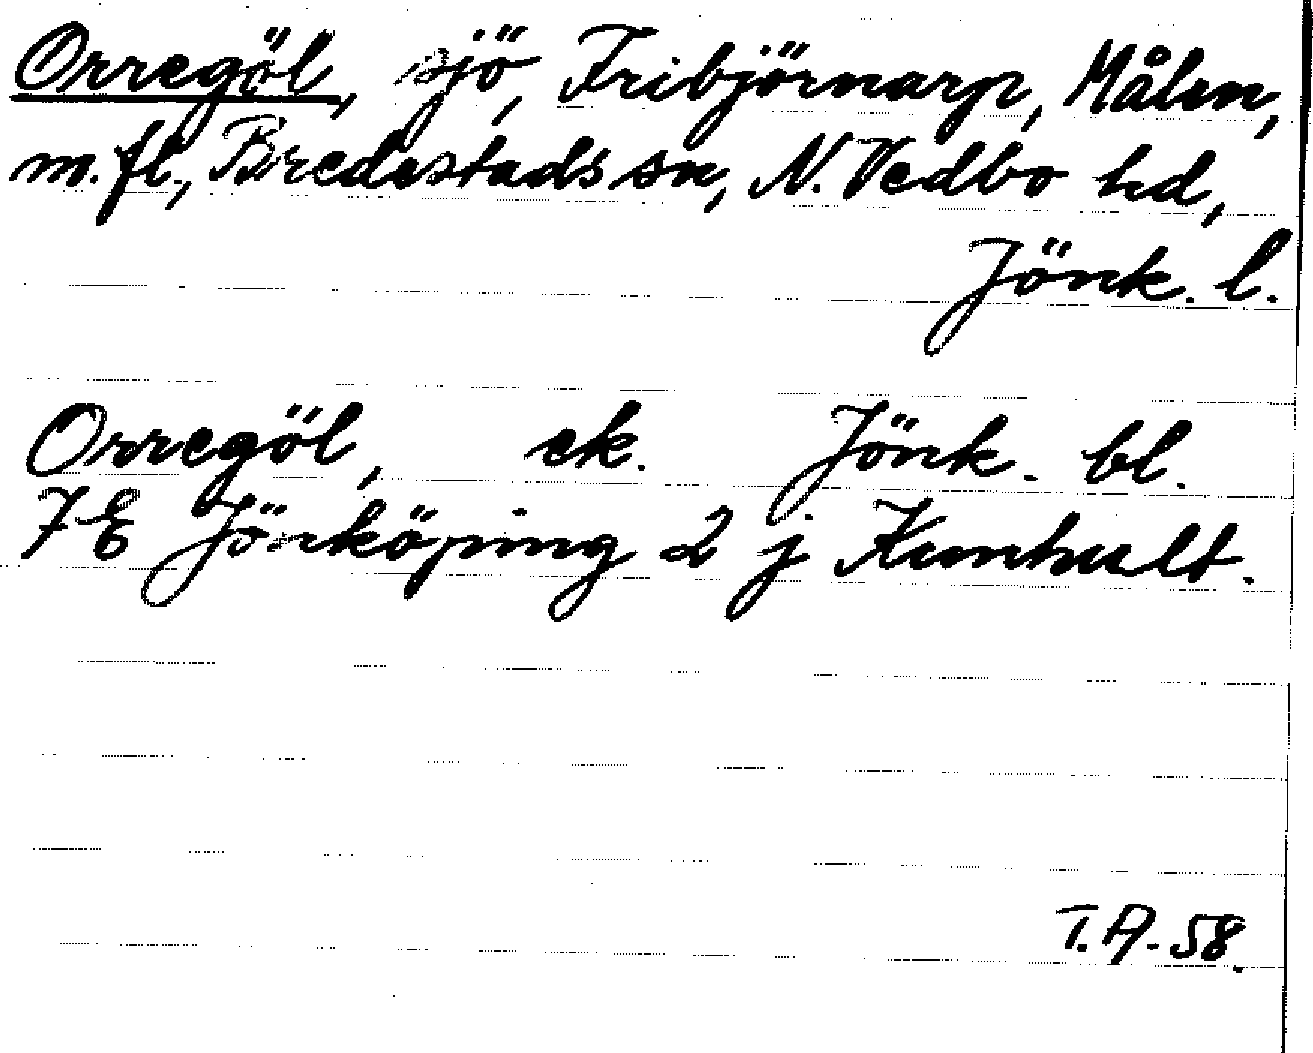 Orregöl, sjö, Fribjörnarp, Målen,
m.fl., Bredestads sn, N. Vedbo hd,
Jönk. l.
Orregöl, ek. Jönk. bl.
7 E Jönköping 2 j Kumhult.
T.A. 58.